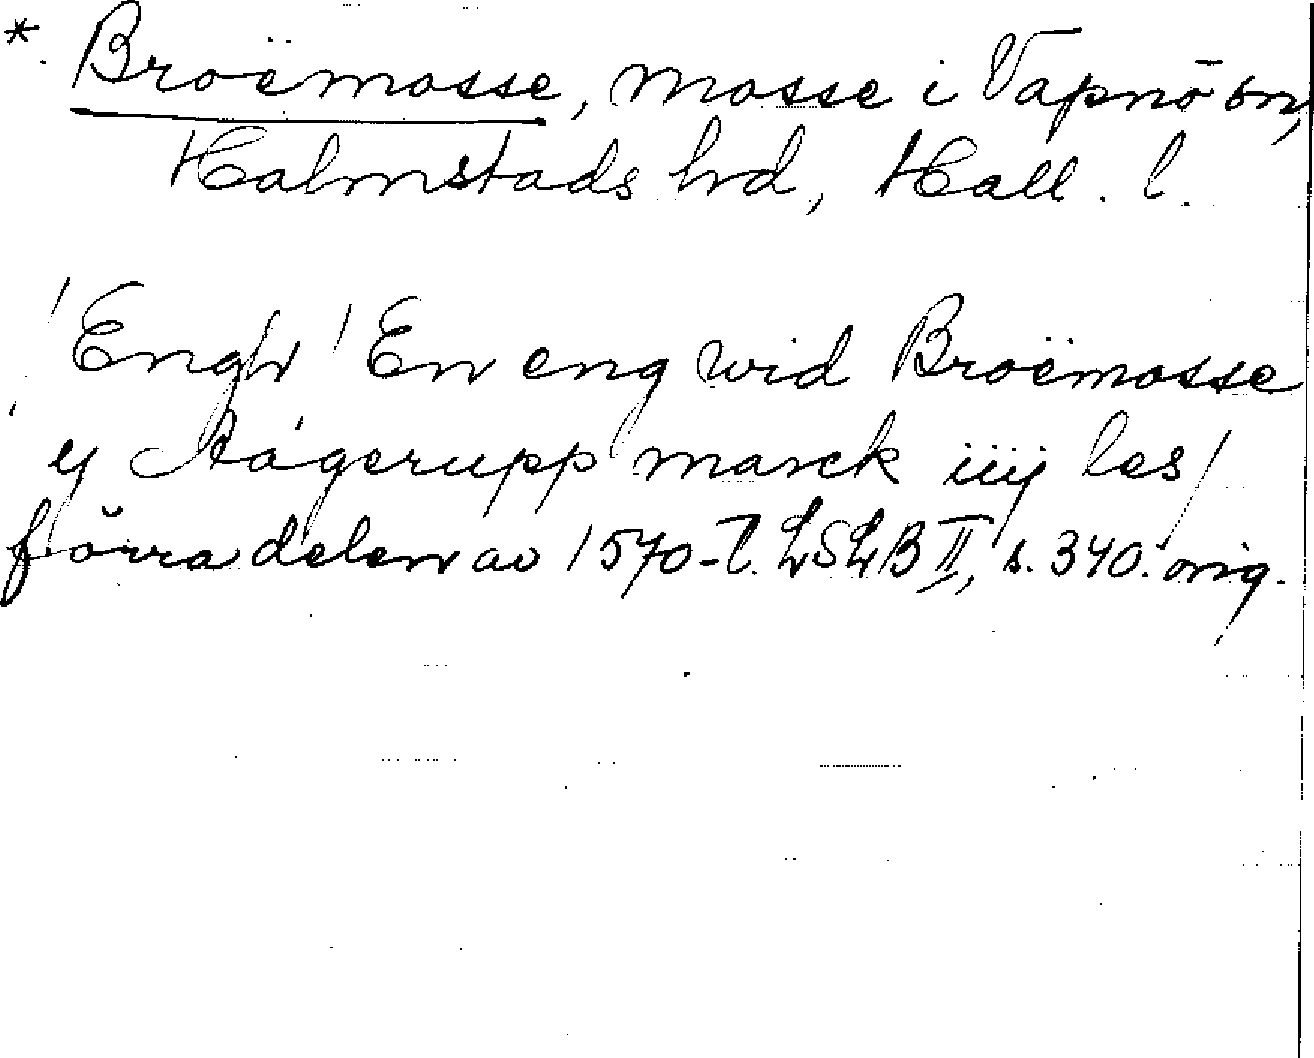 * Broëmosse, mosse i Vapnö sn,
Halmstads hd, Hall. l.
'Engh' En eng wid Broëmosse
y Aágerupp marck iiij les/
förra delen av 1570-t. LSLB II, s. 340. orig.